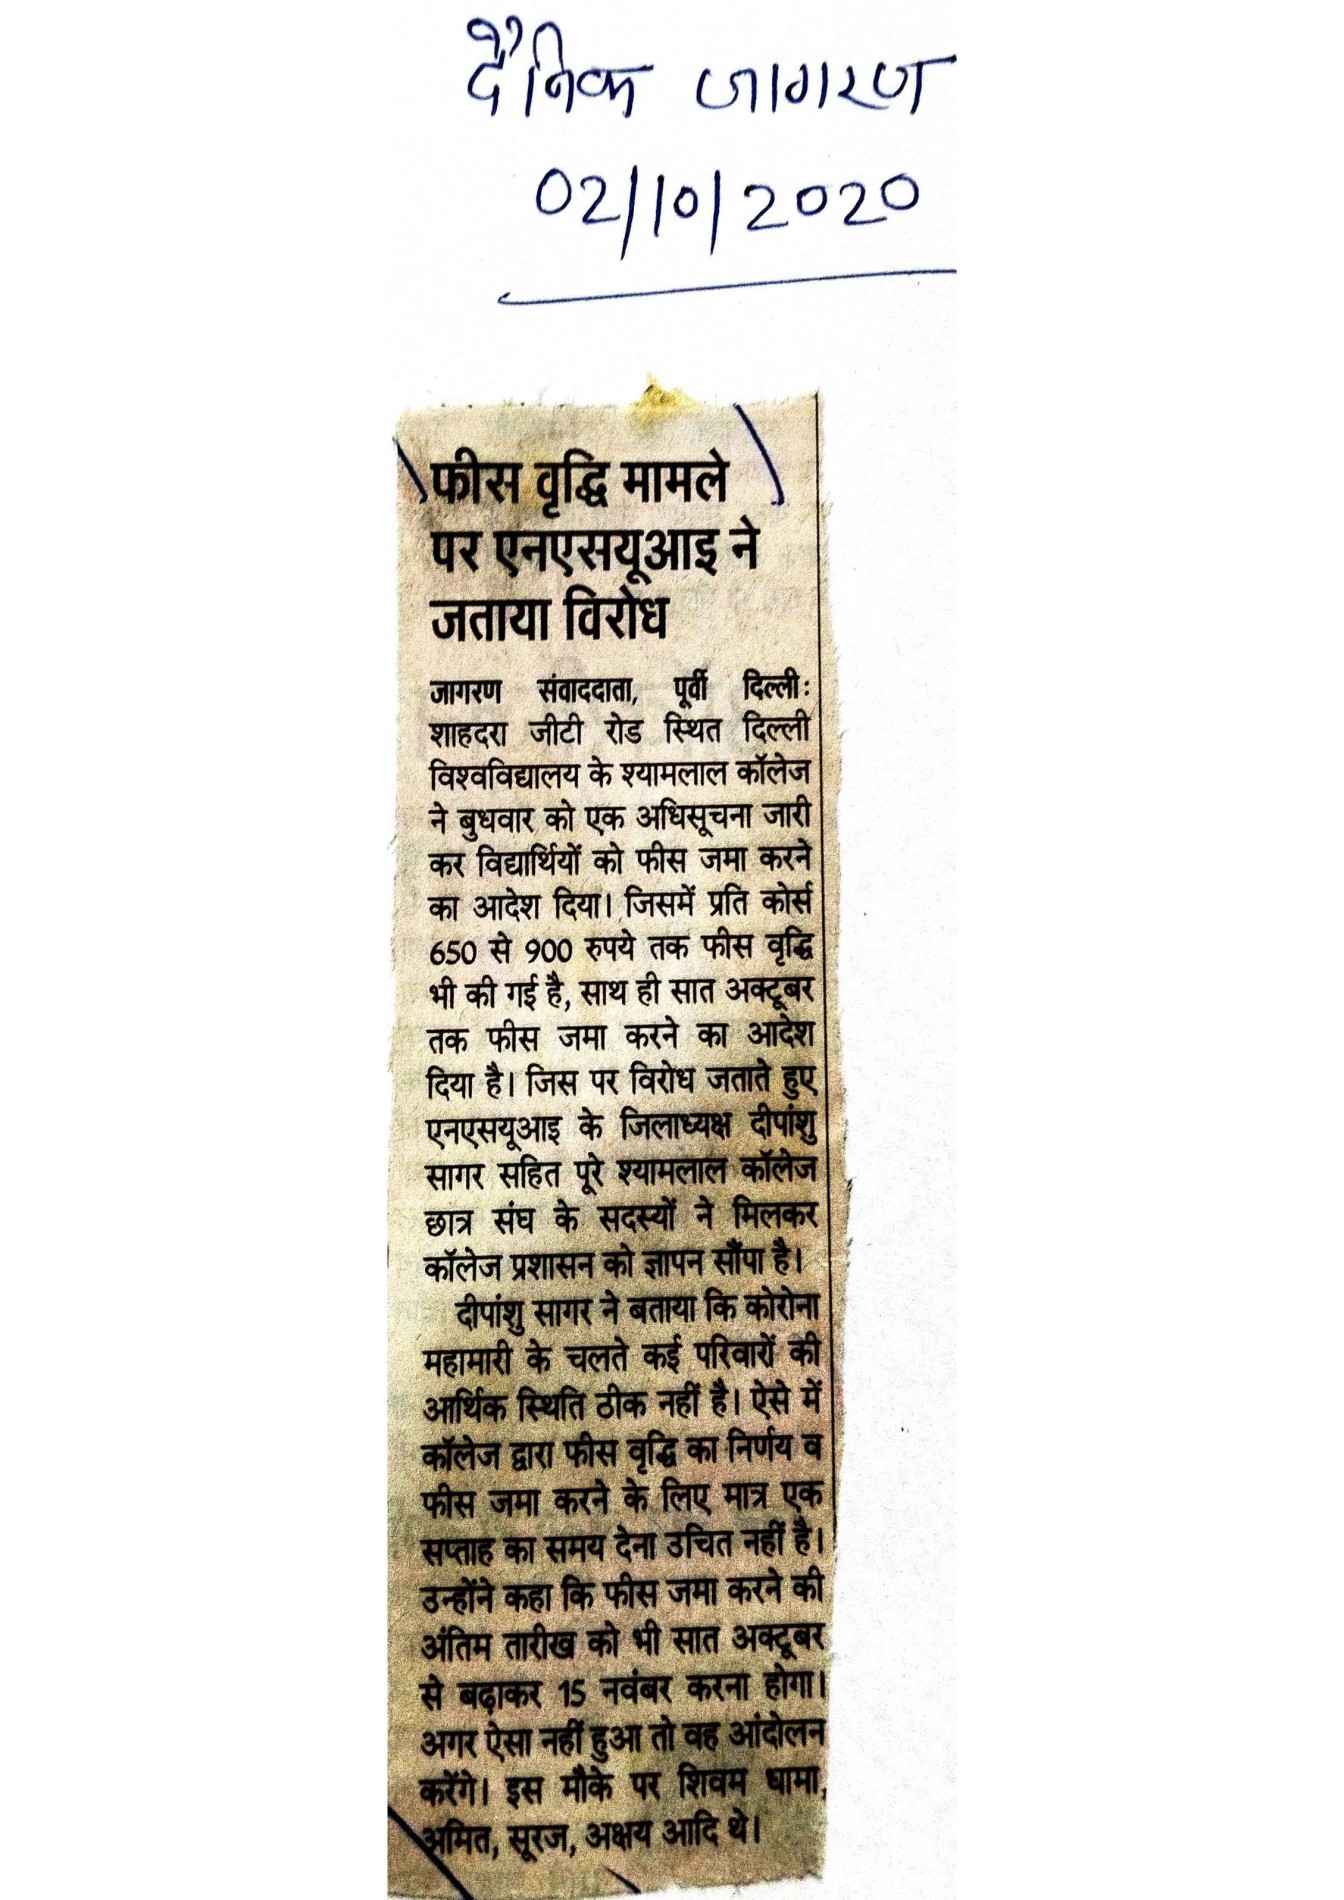 दैनिक जागरण
02/10/2020
फीस वृद्धि मामले
पर एनएसयूआइ ने
जताया विरोध
जागरण संवाददाता, पूर्वी दिल्ली:
शाहदरा जीटी रोड स्थित दिल्ली
विश्वविद्यालय के श्यामलाल कॉलेज
ने बुधवार को एक अधिसूचना जारी
कर विद्यार्थियों को फीस जमा करने
का आदेश दिया। जिसमें प्रति कोर्स
650 से 900 रुपये तक फीस वृद्धि
भी की गई है, साथ ही सात अक्टूबर
तक फीस जमा करने का आदेश
दिया है। जिस पर विरोध जताते हुए
एनएसयूआइ के जिलाध्यक्ष दीपांशु
सागर सहित पूरे श्यामलाल कॉलेज
छात्र संघ के सदस्यों ने मिलकर
कॉलेज प्रशासन को ज्ञापन सौंपा है।
दीपांशु सागर ने बताया कि कोरोना
महामारी के चलते कई परिवारों की
आर्थिक स्थिति ठीक नहीं है। ऐसे में
कॉलेज द्वारा फीस वृद्धि का निर्णय व
फीस जमा करने के लिए मात्र एक
सप्ताह का समय देना उचित नहीं है।
उन्होंने कहा कि फीस जमा करने की
अंतिम तारीख को भी सात अक्टूबर
से बढ़ाकर 15 नवंबर करना होगा।
अगर ऐसा नहीं हुआ तो वह आंदोलन
करेंगे। इस मौके पर शिवम धामा,
अमित, सूरज, अक्षय आदि थे।